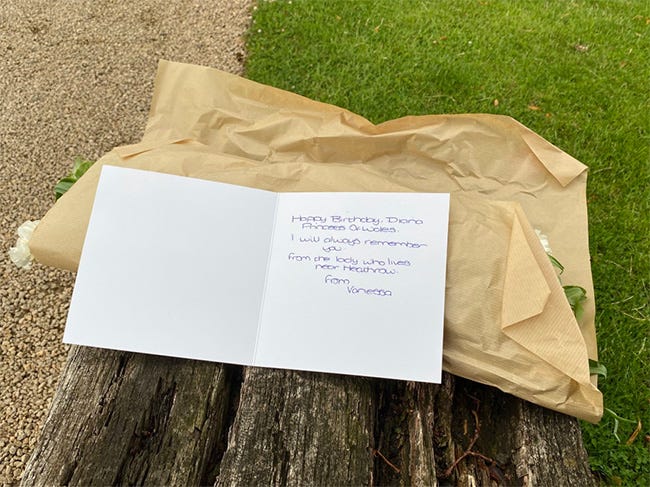 Happy Birthday, Diana
Princess Of Wales.
I will always remember
you.
from the lady who lives
near Heathrow.
from
Vanessa